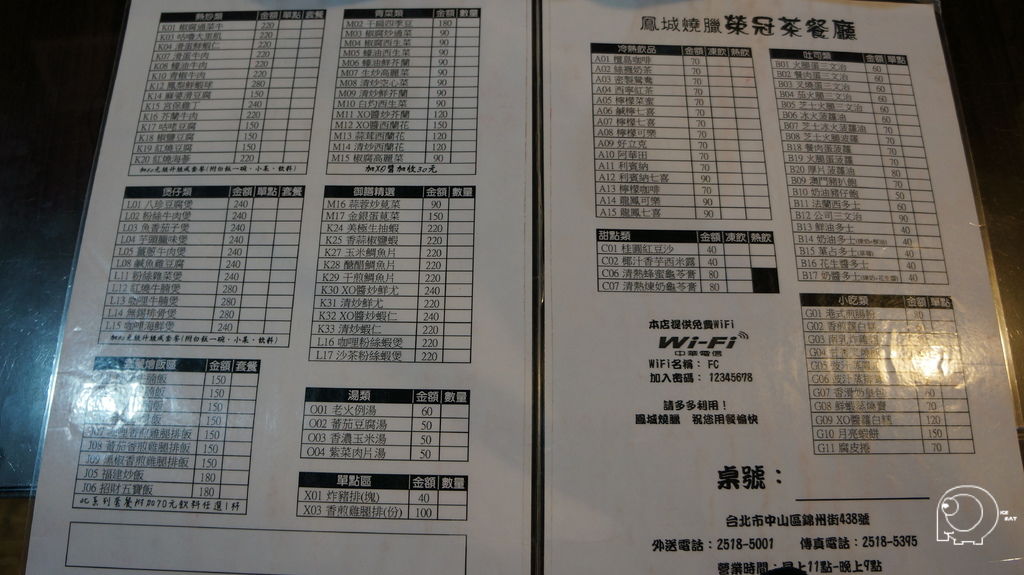 熱炒類 金額 單點 套餐
K01 椒腐通菜牛 220
K03 咕嚕大里肌 220
K04 滑蛋鮮蝦仁 220
K07 滑蛋牛肉 220
K08 蠔油牛肉 220
K10 青椒牛肉 220
K12 鳳梨鮮蝦球 280
K14 麻婆滑豆腐 150
K15 宮保雞丁 240
K16 芥蘭牛肉 240
K17 咕咾豆腐 150
K18 椒鹽豆腐 150
K19 紅燒豆腐 150
K20 紅燒海參 240
煲仔類 金額 單點 套餐
L01 八珍豆腐煲 240
L02 粉絲牛肉煲 240
L03 魚香茄子煲 240
L04 芋頭臘味煲 240
L05 薑蔥牛肉煲 240
L08 鹹魚雞豆腐 240
L11 粉絲雞菜煲 240
L12 紅燒牛腩煲 280
L13 咖哩牛腩煲 280
L14 無錫排骨煲 280
L15 咖哩海鮮煲 240
燴飯區 金額 套餐
150
150
150
150
咖哩香煎雞腿排飯 150
J08 蕃茄香煎雞腿排飯 150
黑椒香煎雞腿排飯 150
J05 福建炒飯 180
J06 招財五寶飯 180
此系列茶餐附加70元飲料任選1杯
青菜類 金額 數量
M02 干扁四季豆 180
M03 椒腐炒通菜 90
M04 椒腐西生菜 90
M05 蠔油西生菜 90
M06 蠔油鮮芥蘭 90
M07 生炒高麗菜 90
M08 清炒空心菜 90
M09 清炒鮮芥蘭 90
M10 白灼西生菜 90
M11 XO醬炒芥蘭 120
M12 XO醬西蘭花 150
M13 蒜茸西蘭花 120
M14 清炒西蘭花 120
M15 椒腐高麗菜 90
加XO醬加收30元
御膳精選 金額 數量
M16 蒜蓉炒莧菜 90
M17 金銀蛋莧菜 150
K24 美極生抽蝦 220
K25 香蒜椒鹽蝦 220
K27 玉米鯛魚片 220
K28 醋醋鯛魚片 220
K29 干煎鯛魚片 220
K30 XO醬炒鮮尤 240
K31 清炒鮮尤 220
K32 XO醬炒蝦仁 240
K33 清炒蝦仁 220
L16 咖哩粉絲蝦煲 220
L17 沙茶粉絲蝦煲 220
湯類 金額 數量
O01 老火例湯 60
O02 蕃茄豆腐湯 50
O03 香濃玉米湯 50
O04 紫菜肉片湯 50
單點區 金額 數量
X01 炸豬排(塊) 40
X03 香煎雞腿排(份) 100
鳳城燒臘 榮冠茶餐廳
冷熱飲品 金額 凍飲 熱飲
A01 檀島咖啡 70
A02 絲襪奶茶 70
A03 密製鴛鴦 70
A04 西寧紅茶 70
A05 檸檬菜蜜 70
A06 鹹檸七喜 90
A07 檸檬七喜 70
A08 檸檬可樂 70
A09 好立克 70
A10 阿華田 70
A11 利賓納 70
A12 利賓納七喜 90
A13 檸檬咖啡 70
A14 龍鳳可樂 90
A15 龍鳳七喜 90
甜點類 金額 凍飲 熱飲
C01 桂圓紅豆沙 40
C02 椰汁香芋西米露 40
C06 清熱蜂蜜龜苓膏 80
C07 清熱煉奶龜苓膏 80
本店提供免費WiFi
Wi-Fi
中華電信
WiFi名稱： FC
加入密碼： 12345678
請多多利用！
鳳城燒臘 祝您用餐愉快
吐司類 金額 單點
B01 火腿蛋三文治 60
B02 餐肉蛋三文治 60
B03 叉燒蛋三文治 60
B04 茄火腿三文治
B05 芝士火腿三文治 60
B06 冰火菠蘿油 60
B07 芝士冰火菠蘿 70
B08 芝士火腿菠蘿 70
B18 餐肉蛋菠蘿 70
B19 火腿蛋菠蘿 70
B20 厚片菠蘿油 80
B09 澳門豬扒飽
B10 奶油豬仔飽 50
B11 法蘭西多士
B12 公司三文治 90
B13 鮮油多士 40
B14 奶油多士 40
B15 菓占多士 40
B16 花生醬多士 40
B17 奶醬多士 40
小吃類 金額 單點
G01 港式煎腸粉 80
G02 香煎蘿白糕
G03 南乳炸雞
G06 豉汁蒸排骨
G07 香滑奶皇包
G08 鮮蝦蒸燒賣
G09 XO醬蘿白糕 120
G10 月亮蝦餅 150
G11 腐皮捲 70
桌號：
台北市中山區錦州街438號
外送電話：2518-5001 傳真電話：2518-5395
營業時間：早上11點-晚上9點
ICE
EAT